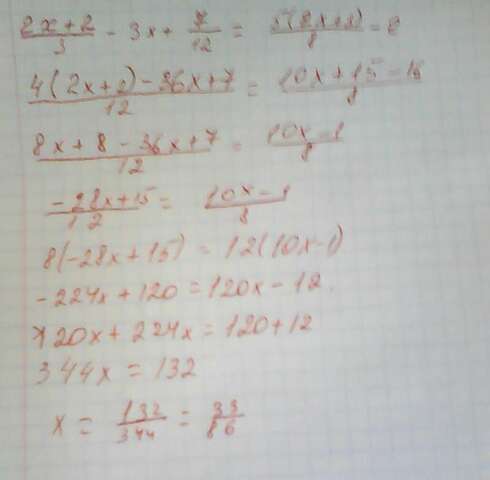 (2x+2)/3 - 3x + 7/12 = 5(2x+3)/8 - 2
(4(2x+2) - 36x+7)/12 = (10x+15-16)/8
(8x+8-36x+7)/12 = (10x-1)/8
(-28x+15)/12 = (10x-1)/8
8(-28x+15) = 12(10x-1)
-224x+120 = 120x-12
120x+224x = 120+12
344x = 132
x = 132/344 = 33/86